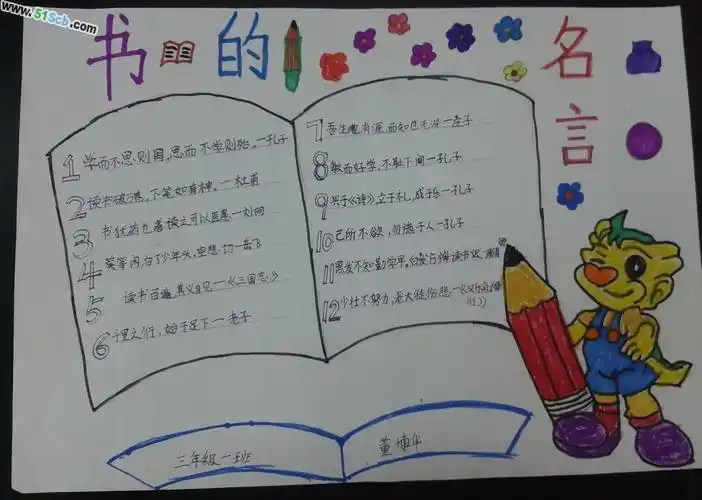 www.51Scb.com
书的名言
1 学而不思则罔,思而不学则殆。一孔子
2 读书破万卷,下笔如有神。一杜甫
3 书犹药也善读之可以医愚一刘向
4 莫等闲,白了少年头,空悲切一岳飞
5 读书百遍,其义自见一《三国志》
6 千里之行,始于足下一老子
7 吾生也有涯,而知也无涯一庄子
8 敏而好学,不耻下问一孔子
9 兴于《诗》,立于礼,成于乐一孔子
10 己所不欲,勿施于人一孔子
11 黑发不知勤学早,白发方悔读书迟
12 少壮不努力,老大徒伤悲一《汉乐府
三年级一班
董博